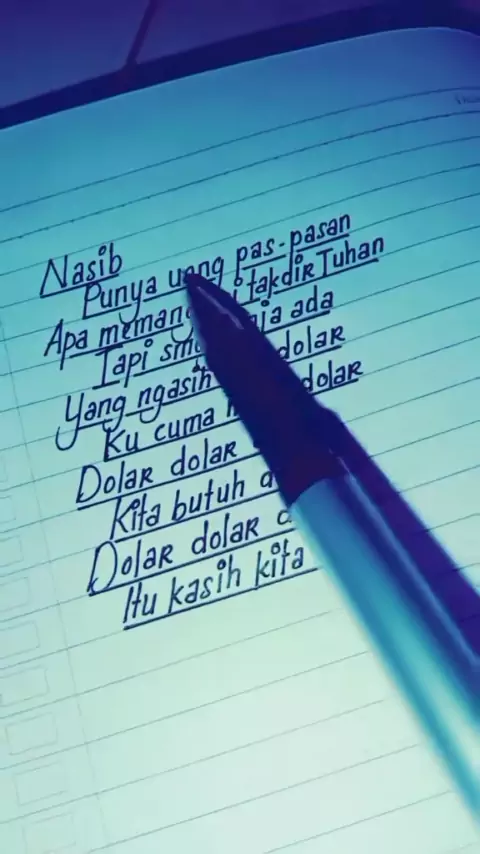 Nasib
Punya uang pas-pasan
Apa memang takdir Tuhan
Tapi ada
Yang ngasih dolar
Ku cuma dolar
Dolar dolar
Kita butuh
Dolar dolar
Itu kasih kita